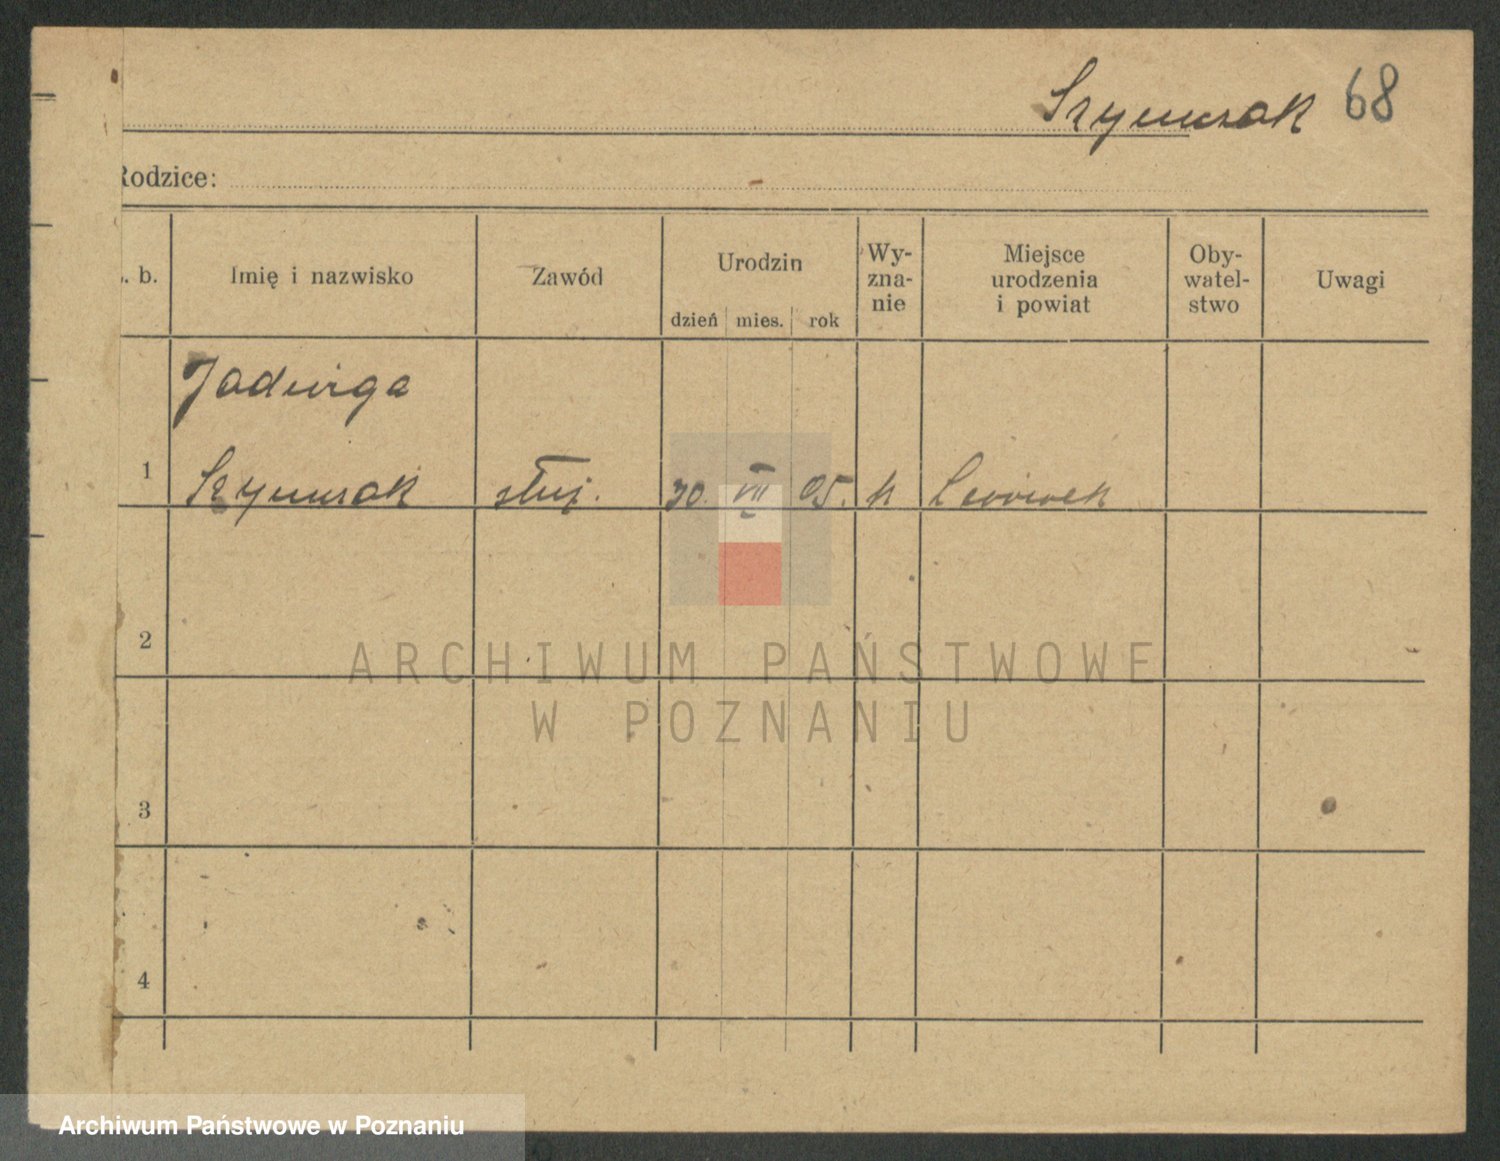 Szymczak 68
Rodzice:
. b. Imię i nazwisko Zawód Urodzin dzień mies. rok Wy-zna-nie Miejsce urodzenia i powiat Oby-watel-stwo Uwagi
Jadwiga
1 Szymczak służ. 30. VII 05. k Lwówek
2
ARCHIWUM PAŃSTWOWE
W POZNANIU
3
4
Archiwum Państwowe w Poznaniu